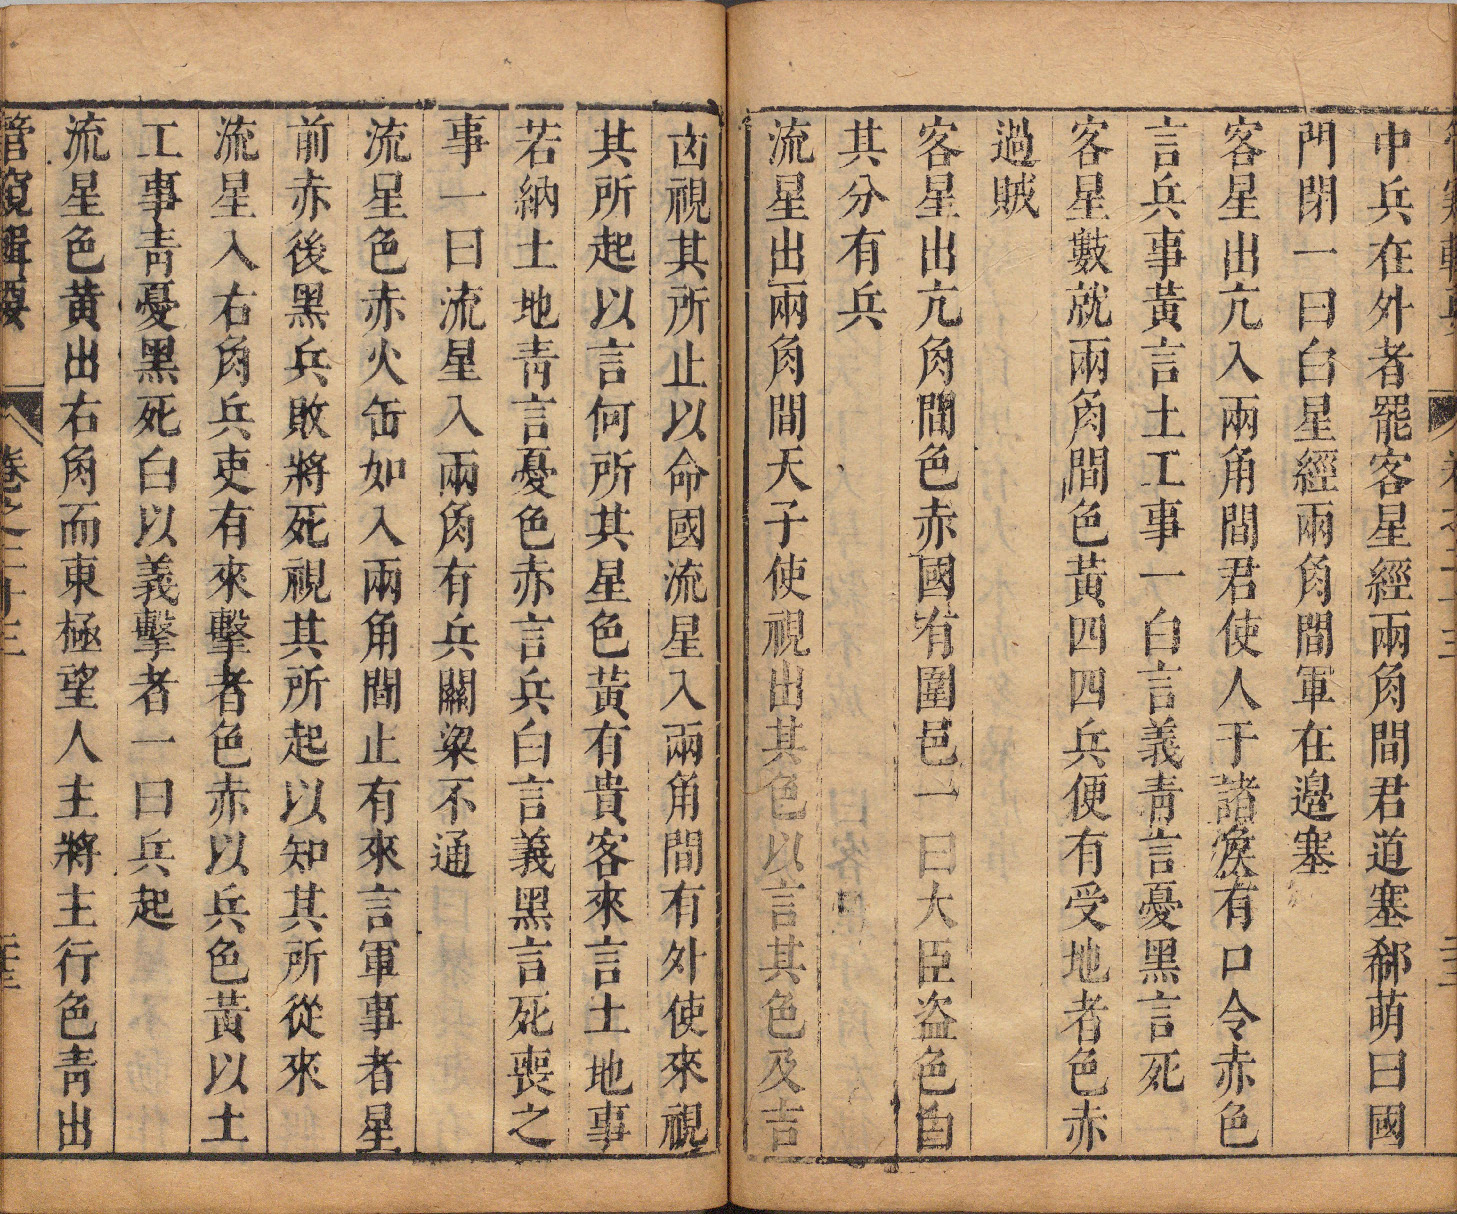 中兵在外者罷客星經兩角間君道塞郗萌曰國
門閉一曰白星經兩角間軍在邊塞
客星出亢入兩角間君使人于諸侯有口令赤色
言兵事黃言土工事一白言義青言憂黑言死
客星數就兩角間色黃四四兵便有受地者色赤
過賊
客星出亢角間色赤國有圍邑一曰大臣盜色白
其分有兵
流星出兩角間天子使視出其色以言其色及吉
凶視其所止以命國流星入兩角間有外使來視
其所起以言何所其星色黃有貴客來言土地事
若納土地青言憂色赤言兵白言義黑言死喪之
事一曰流星入兩角有兵關梁不通
流星色赤火缶如入兩角間止有來言軍事者星
前赤後黑兵敗將死視其所起以知其所從來
流星入右角兵吏有來擊者色赤以兵色黃以土
工事青憂黑死白以義擊者一曰兵起
流星色黃出右角而東極望人主將主行色青出
管窺輯要 卷之二十三